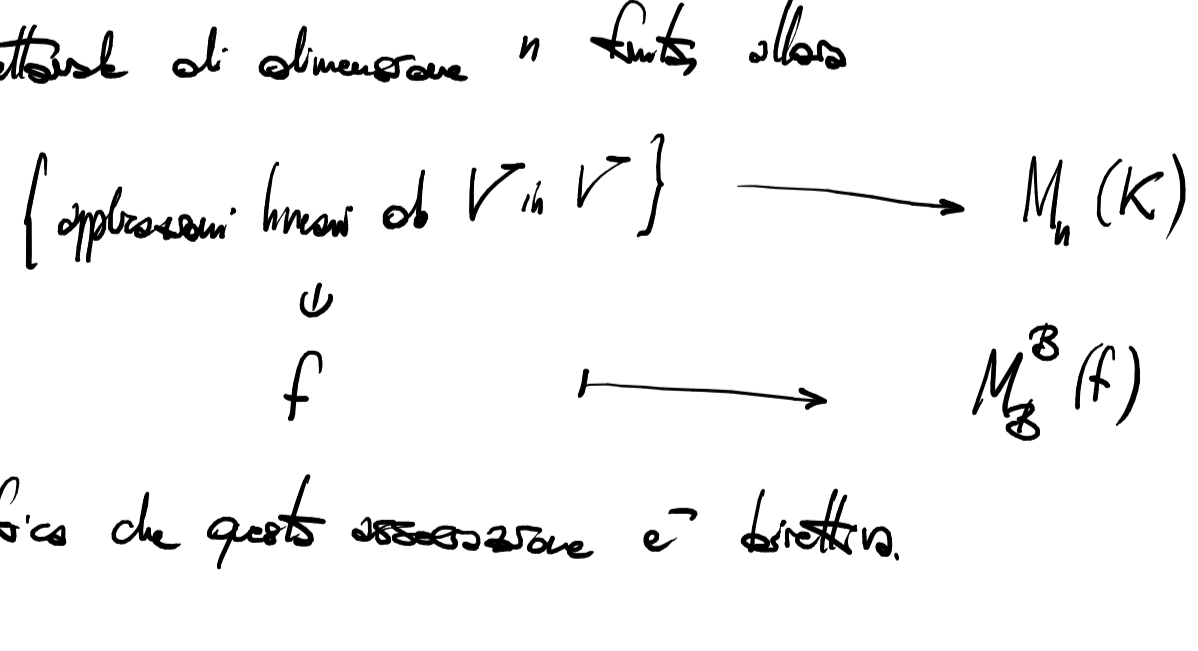 ettoriale di dimensione n finita, allora
{applicazioni lineari da V in V} ⟶ Mₙ(K)
∪
f ⟼ M_B^B(f)
fica che questa associazione è biettiva.